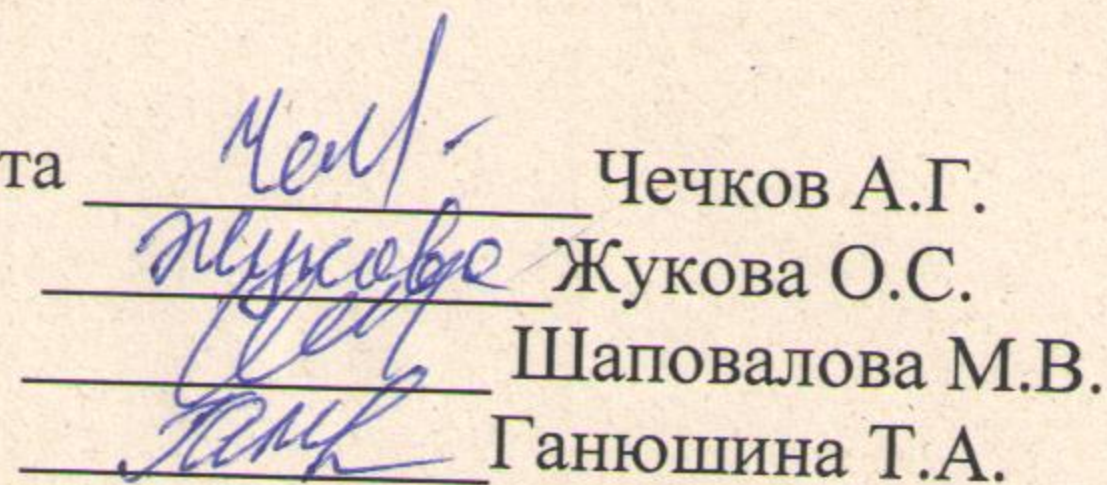 та Чечков А.Г.
Жукова Жукова О.С.
Шаповалова М.В.
Ганюшина Т.А.